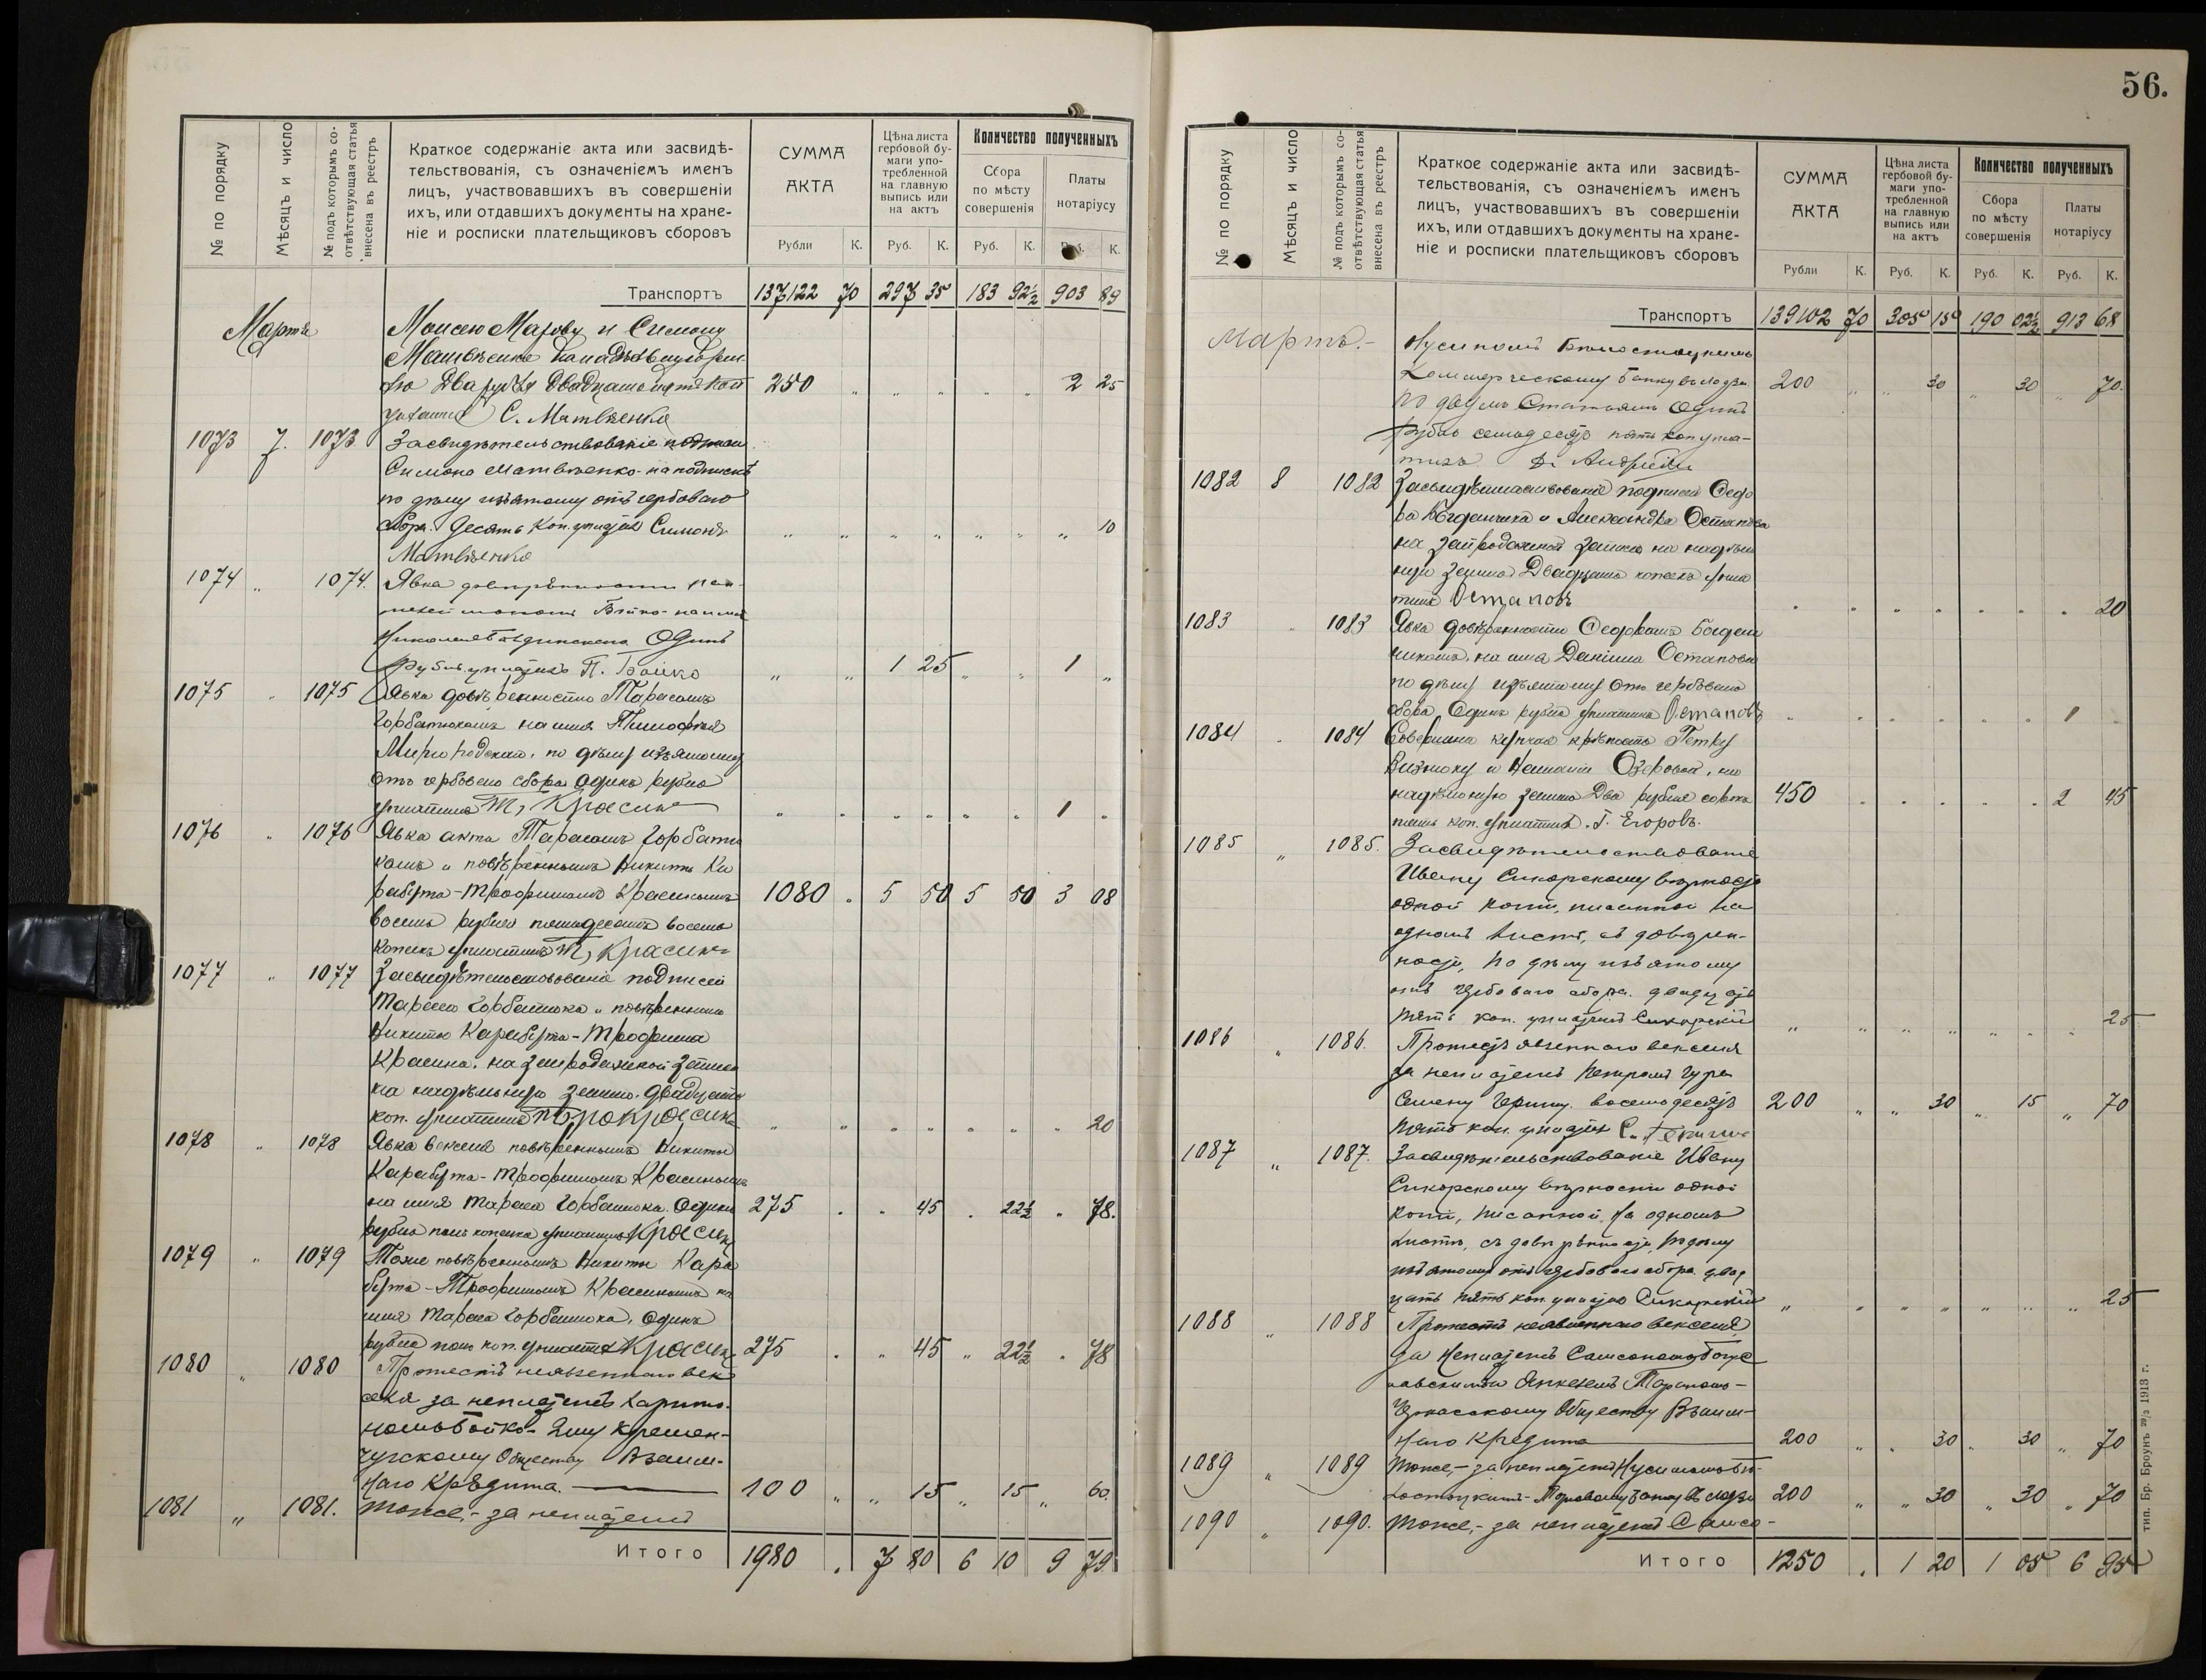 № по порядку
Мѣсяцъ и число
№ подъ которымъ со-
отвѣтствующая статья
внесена въ реестръ
Краткое содержаніе акта или засвидѣ-
тельствованія, съ означеніемъ именъ
лицъ, участвовавшихъ въ совершеніи
ихъ, или отдавшихъ документы на хране-
ніе и росписки плательщиковъ сборовъ
СУММА
АКТА
Рубли К.
Цѣна листа
гербовой бу-
маги упо-
требленной
на главную
выпись или
на актъ
Руб. К.
Количество полученныхъ
Сбора
по мѣсту
совершенія
Руб. К.
Платы
нотаріусу
Руб. К.
Транспортъ 137122 70 297 35 183 92½ 903 89
Мартъ
Моисею Мазову и Симону
Матвѣенко
Два рубля двадцать пять коп 250 " " " " " 2 25
С. Матвѣенко
1073 7. 1073 Засвидѣтельствованіе подписи
Симона Матвѣенко на подпискѣ
по дѣлу изъятому отъ гербоваго
сбора. Десять коп. уплатилъ Симонъ " " " " " " " 10
Матвѣенко
1074 " 1074. Явка довѣренности
Бойко на имя
Николая Одинъ
рубль уплатилъ П. Бойко " " 1 25 " " 1 "
1075 " 1075 Явка довѣренности Тарасомъ
Горбатюкомъ на имя Тимофея
по дѣлу изъятому
отъ гербоваго сбора Одинъ рубль
уплатилъ Т. Красин " " " " " " 1 "
1076 " 1076 Явка акта Тарасомъ Горбатю
комъ и повѣреннымъ Никиты Ка
рабута-Трофимомъ Красинымъ 1080 " 5 50 5 50 3 08
восемь рублей пятьдесятъ восемь
копѣекъ уплатилъ Т. Красин
1077 " 1077 Засвидѣтельствованіе подписей
Тараса Горбатюка и повѣреннаго
Никиты Карабута-Трофима
Красина, на запродажной записи
на надѣльную землю. Двадцать
коп. уплатилъ Трох Красин " " " " " " " 20
1078 " 1078 Явка векселя повѣреннымъ Никиты
Карабута-Трофимомъ Красинымъ
на имя Тараса Горбатюка. Одинъ 275 " " 45 " 22½ " 78.
рубль полъ копѣйки уплатилъ Красин
1079 " 1079 Тоже повѣреннымъ Никиты Кара
бута-Трофимомъ Красинымъ на
имя Тараса Горбатюка, Одинъ
рубль полъ коп. уплатилъ Красин 275 " " 45 " 22½ " 78
1080 " 1080 Протестъ неявленнаго век
селя за неплатежъ Харито-
номъ Бойко Кремен-
чугскому Обществу Взаим-
наго Кредита. 100 " " 15 " 15 " 60.
1081 " 1081. Тоже,- за неплатежъ
Итого 1980 . 7 80 6 10 9 79.
56.
№ по порядку
Мѣсяцъ и число
№ подъ которымъ со-
отвѣтствующая статья
внесена въ реестръ
Краткое содержаніе акта или засвидѣ-
тельствованія, съ означеніемъ именъ
лицъ, участвовавшихъ въ совершеніи
ихъ, или отдавшихъ документы на хране-
ніе и росписки плательщиковъ сборовъ
СУММА
АКТА
Рубли К.
Цѣна листа
гербовой бу-
маги упо-
требленной
на главную
выпись или
на актъ
Руб. К.
Количество полученныхъ
Сбора
по мѣсту
совершенія
Руб. К.
Платы
нотаріусу
Руб. К.
Транспортъ 139102 70 305 15 190 02½ 913 68
Мартъ.-
Нусиномъ Бѣлостоцкимъ
Коммерческому Банку въ Лодзи. 200 " " 30 " 30 " 70.
По двумъ Статьямъ Одинъ
рубль семьдесятъ пять коп упла-
тилъ
1082 8 1082 Засвидѣтельствованіе подписей Ѳедо
ра Богданчика и Александра Остапова
на запродажной записи на надѣль
ную землю Двадцать копѣекъ упла
тилъ Остаповъ " " " " " " " 20
1083 " 1083 Явка довѣренности Ѳедоромъ Богдан
чикомъ, на имя Даніила Остапова
по дѣлу изъятому отъ гербоваго
сбора, Одинъ рубль уплатилъ Остаповъ " " " " " " 1 "
1084 " 1084 Совершена купчая крѣпость Петру
и Озеровой, на
надѣльную землю Два рубля сорокъ 450 " " " " " 2 45
пять коп. уплатилъ. Г. Егоровъ.
1085 " 1085. Засвидѣтельствованіе
Ивану Сикорскому вѣрности
одной копіи, писанной на
одномъ листѣ, съ довѣрен-
ности, по дѣлу изъятому
отъ гербоваго сбора. двадцать
пять коп. уплатилъ Сикорскій " " " " " " " 25
1086 " 1086. Протестъ явленнаго векселя
за неплатежъ Петромъ Гура
Семену Черниш. восемьдесятъ 200 " " 30 " 15 " 70
пять коп. уплатилъ С.
1087 " 1087. Засвидѣтельствованіе Ивану
Сикорскому вѣрности одной
копіи, писанной на одномъ
листѣ, съ довѣренности, по дѣлу
изъятому отъ гербоваго сбора. двад
цать пять коп. уплатилъ Сикорскій " " " " " " " 25
1088 " 1088 Протестъ неявленнаго векселя
за неплатежъ Самсономъ Богус
лавскимъ Таганомъ-
Черкасскому Обществу Взаим-
наго Кредита 200 " " 30 " 30 " 70
1089 " 1089 Тоже,- за неплатежъ Нусиномъ Бѣ-
лостоцкимъ- Торговому Банку въ Лодзи 200 " " 30 " 30 " 70
1090 " 1090. Тоже,- за неплатежъ Самсо-
Итого 1250 . 1 20 1 05 6 95
тип. Бр. Броунъ 29/3 1913 г.